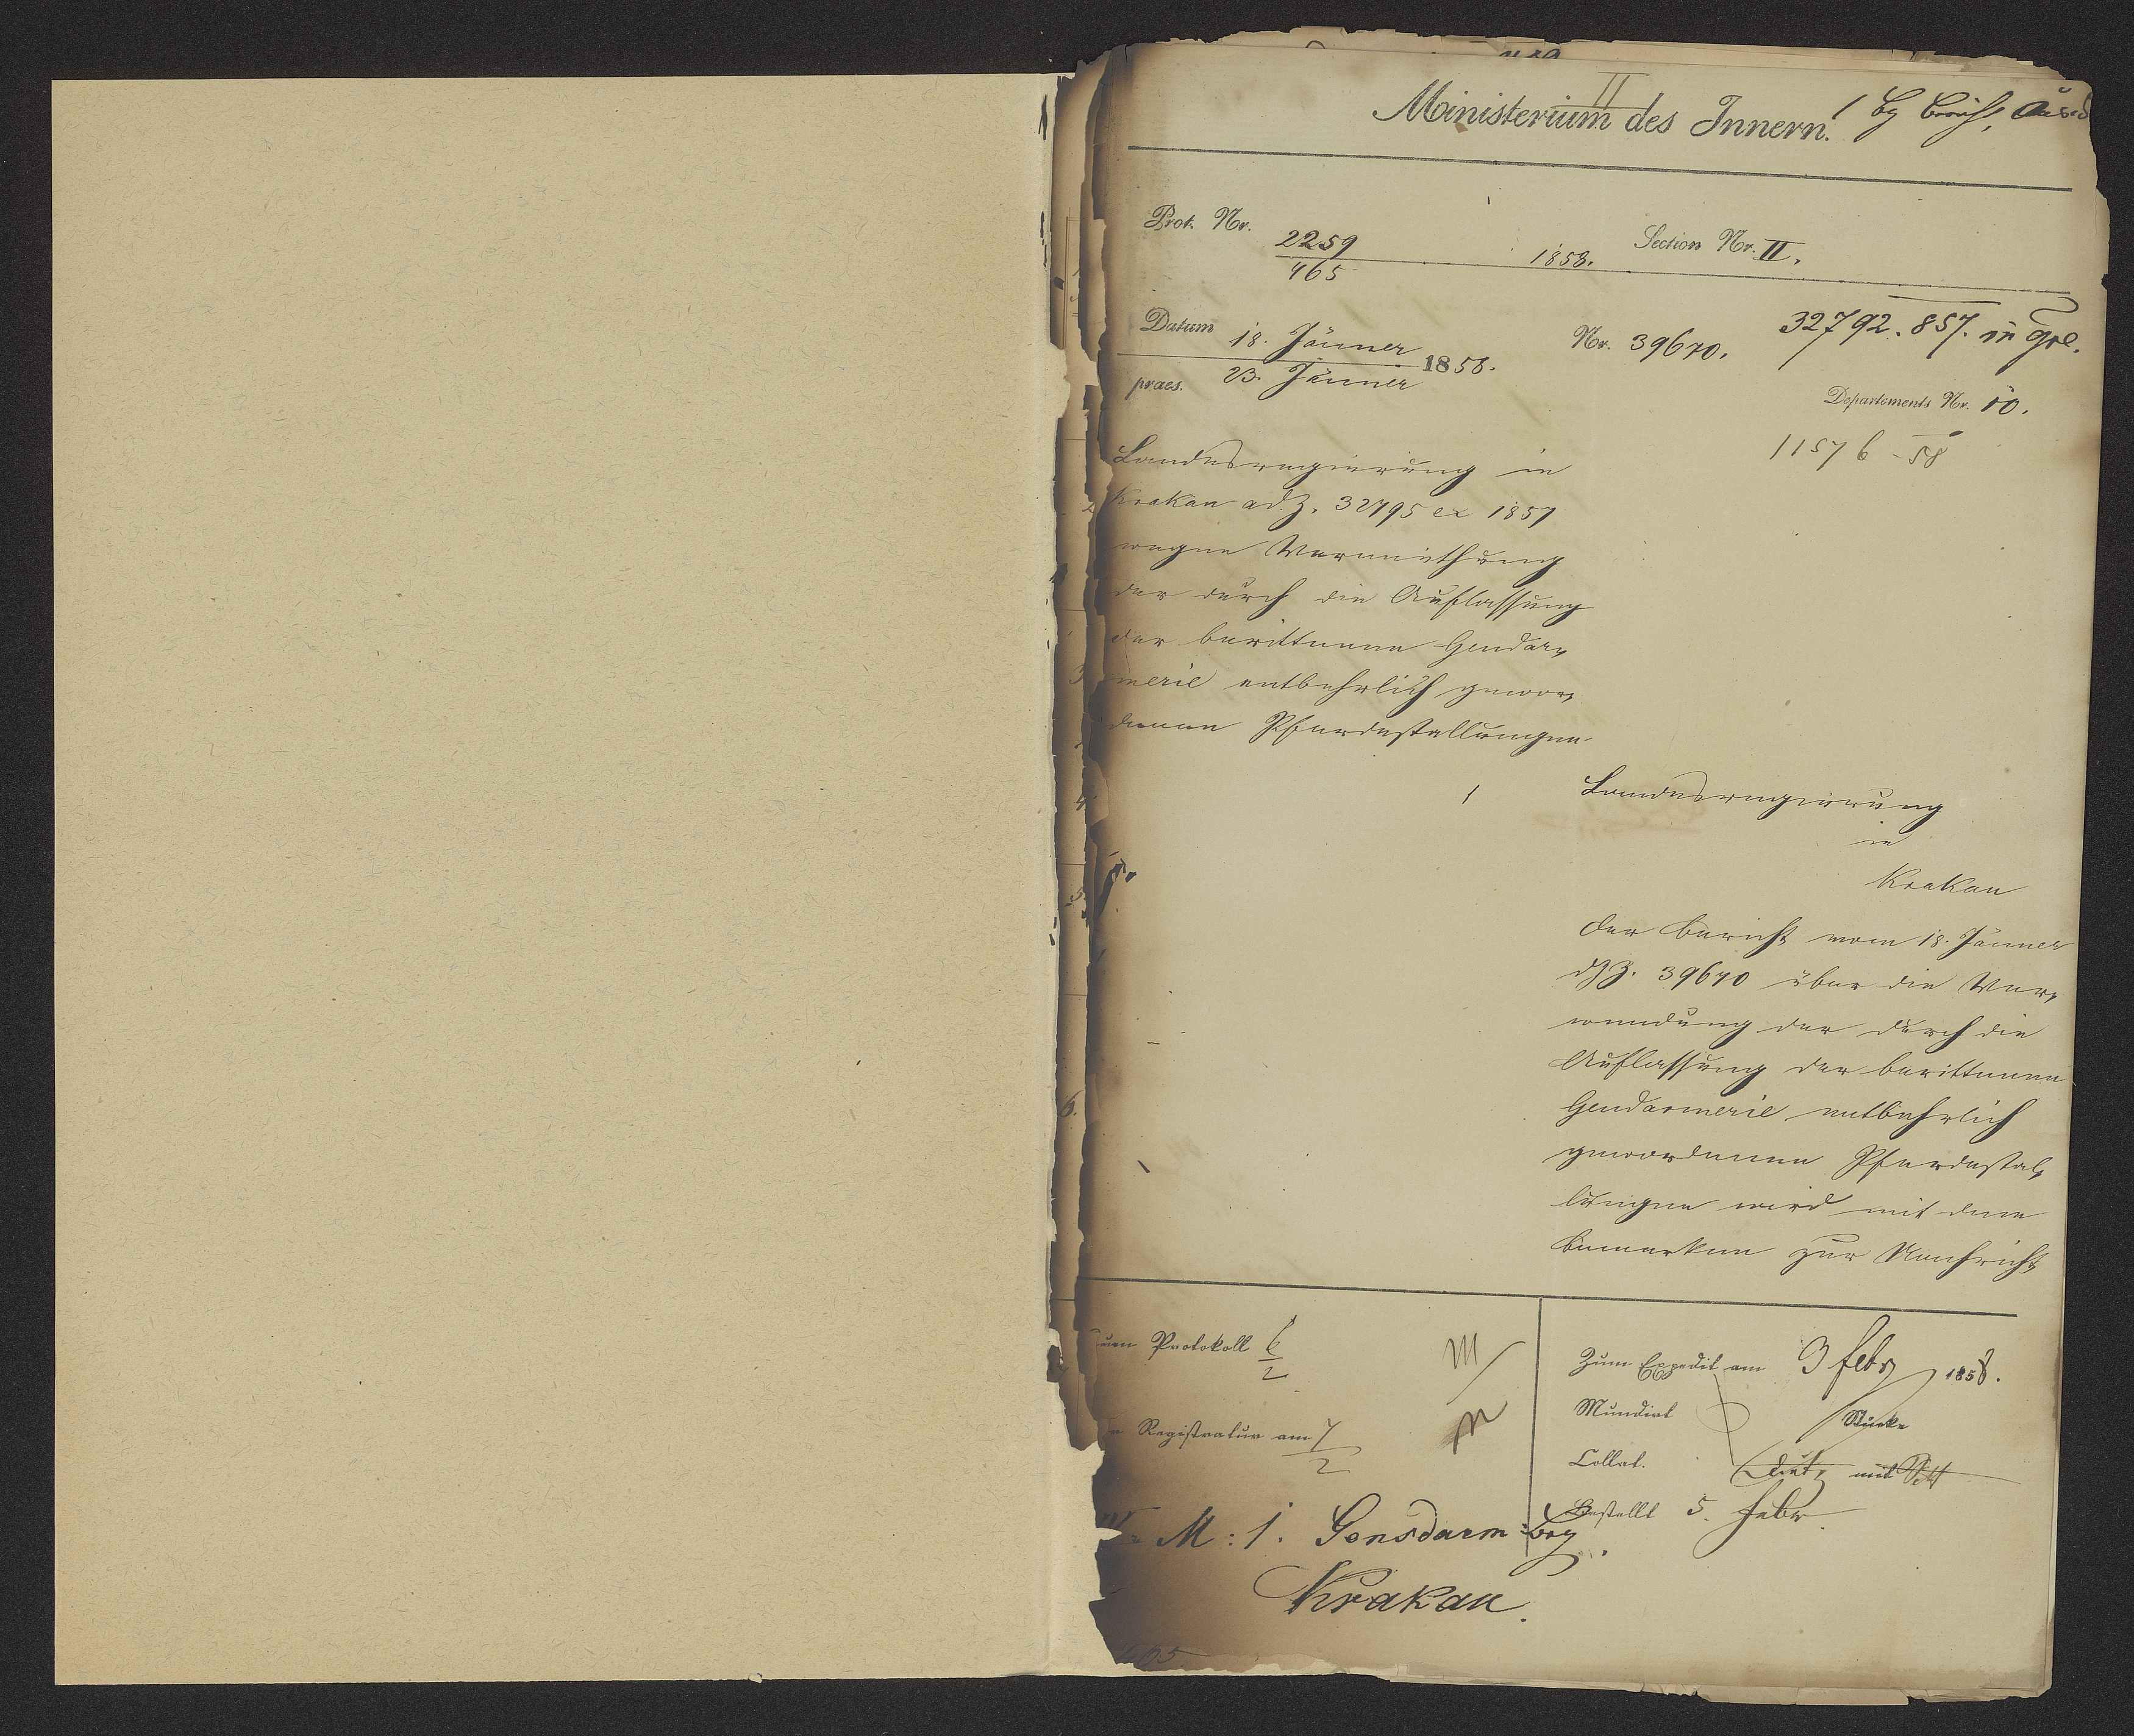 II
Ministerium des Innern.
Prot. Nr. 2259
465
1858. Section Nr. II.
Datum 18. Jänner
praes. 23. Jänner 1858.
Nr. 39670.
32792. 857. in
Departements Nr. 10.
11576 - 58
Landesregierung in
Krakau ad Z. 32795 ex 1857
wegen Vermiethung
der durch die Auflassung
der berittenen Gendar,
merie entbehrlich gewor,
denen Pferdestallungen.
Landesregierung
in
Krakau
Der Bericht vom 18. Jänner
Z. 39670 über die Ver,
wendung der durch die
Auflassung der berittenen
Gendarmerie entbehrlich
gewordenen Pferdestal,
lungen wird mit dem
Bemerken zur Nachricht
Protokoll 6
2
Registratur am 7
2
Zum Expedit am 3 Febr 1858.
Mundirt
Collat.
Bestellt 5. Febr.
M: 1. Gensdarm:
Krakau.